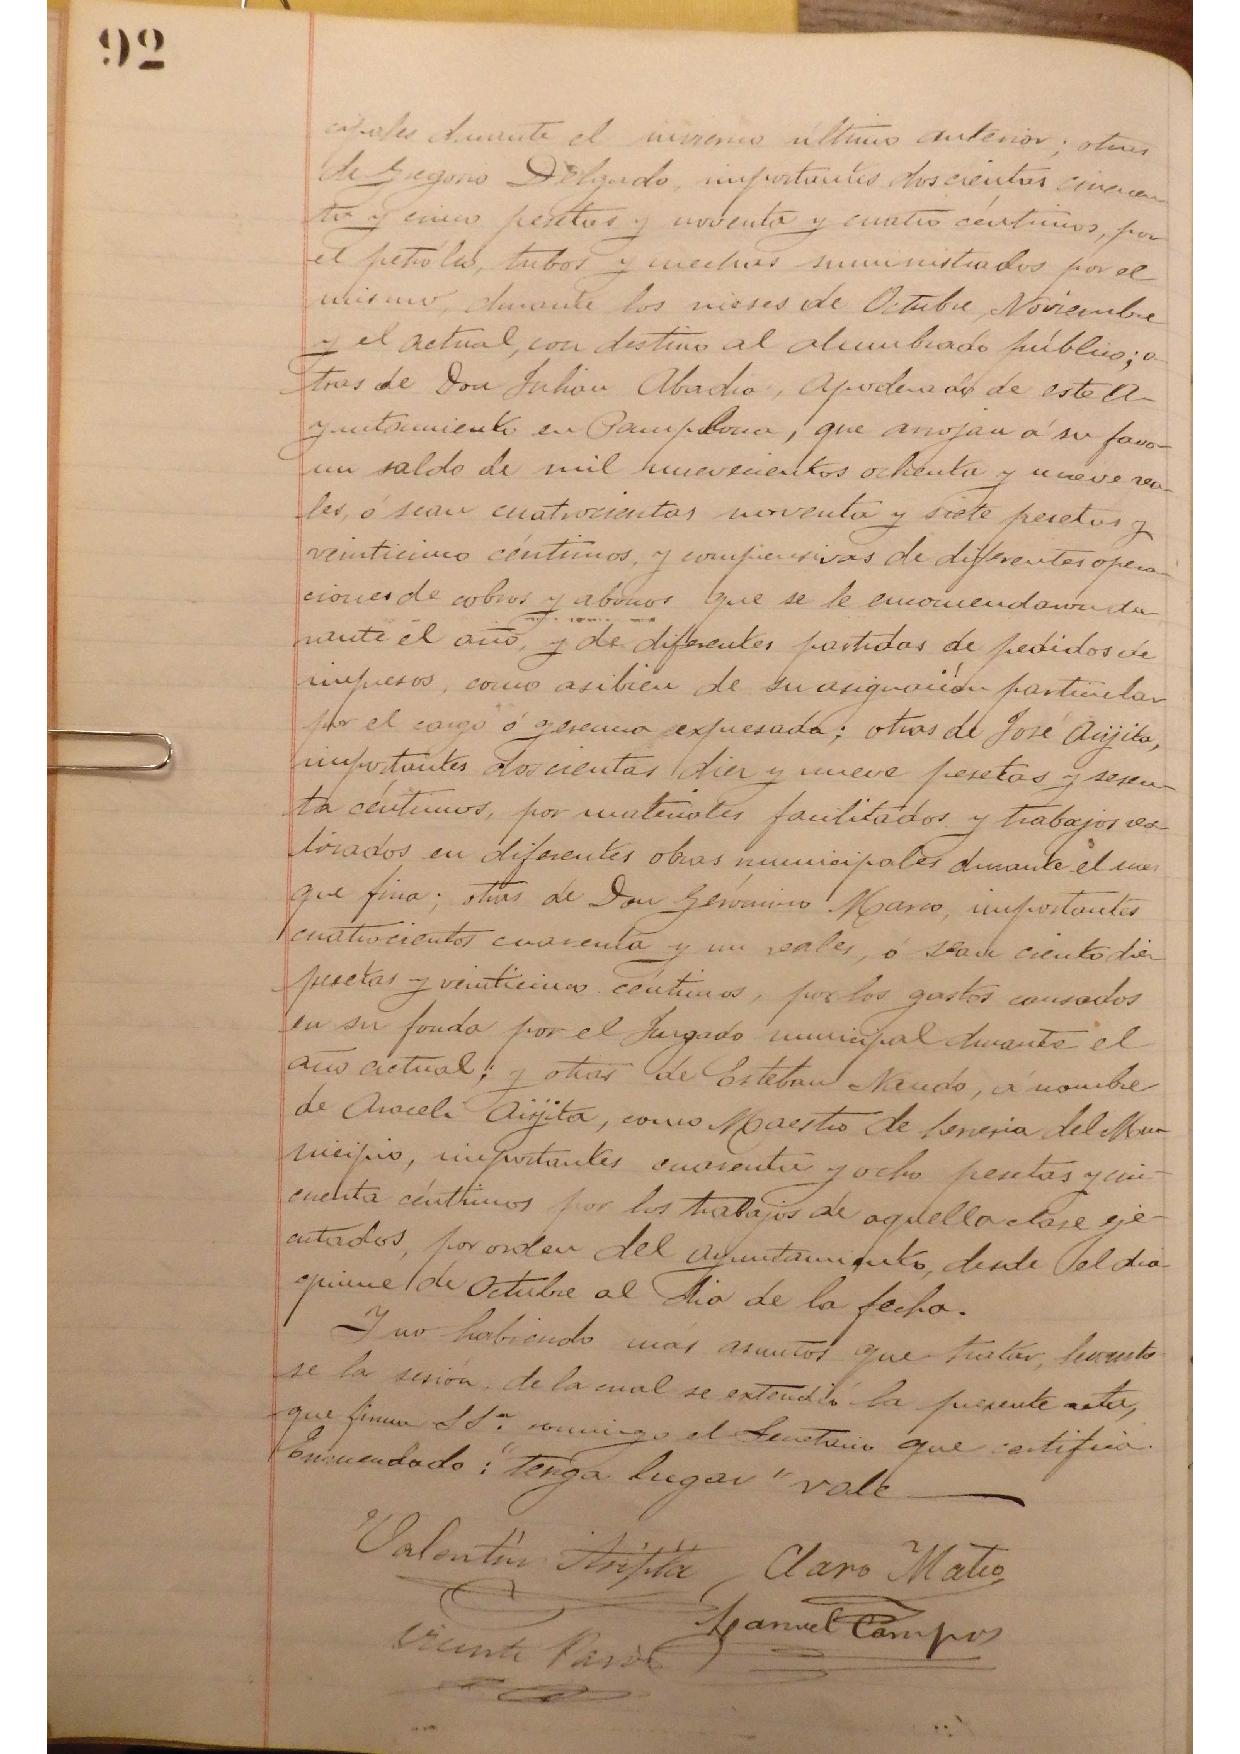 92
cipales durante el invierno último anterior; otras
de Gregorio Delgado, importantes doscientas cincuen-
ta y cinco pesetas y noventa y cuatro céntimos, por
el petróleo, tubos y mechas suministrados por el
mismo, durante los meses de Octubre, Noviembre
y el actual, con destino al alumbrado público; o-
tras de Don Julian Abadia, Apoderado de este A-
yuntamiento en Pamplona, que arrojan á su favor
un saldo de mil nuevecientos ochenta y nueve rea-
les, ó sean cuatrocientas noventa y siete pesetas y
veinticinco céntimos, y comprensivas de diferentes opera-
ciones de cobros y abonos que se le encomendaron du-
rante el año, y de diferentes partidas de pedidos de
impresos, como asibien de su asignación particular
por el cargo ó gerencia expresada; otras de José Arijita,
importantes doscientas diez y nueve pesetas y sesen-
ta céntimos, por materiales facilitados y trabajos ves-
tirados en diferentes obras municipales durante el mes
que fina; otras de Don Gerónimo Marco, importantes
cuatrocientos cuarenta y un reales, ó sean ciento diez
pesetas y veinticinco céntimos, por los gastos causados
en su fonda por el Juzgado municipal durante el
año actual; y otras de Esteban Nando, á nombre
de Araceli Arijita, como Maestro de herreria del Mu-
nicipio, importantes cuarenta y ocho pesetas y cin-
cuenta céntimos por los trabajos de aquella clase eje-
cutados, por orden del ayuntamiento, desde el dia
quince de Octubre al dia de la fecha.
Y no habiendo más asuntos que tratar, levantó-
se la sesión, de la cual se extendió la presente acta,
que firman SSª. conmigo el Secretario que certifico.
Enmendado: "tenga lugar" vale
Valentin Arijita Claro Mateo
Manuel Campos
Vicente